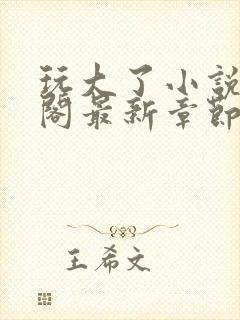 玩大了小說
閣最新章節
王希文